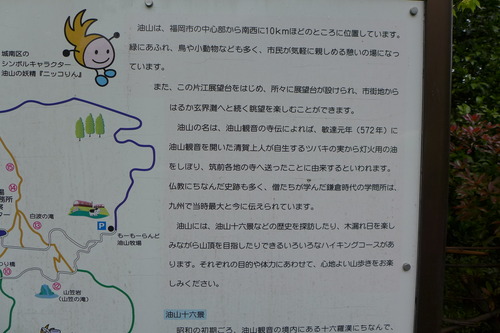 油山は、福岡市の中心部から南西に10kmほどのところに位置しています。
緑にあふれ、鳥や小動物なども多く、市民が気軽に親しめる憩いの場になっ
ています。
また、この片江展望台をはじめ、所々に展望台が設けられ、市街地から
はるか玄界灘へと続く眺望を楽しむことができます。
油山の名は、油山観音の寺伝によれば、敏達元年(572年)に
油山観音を開いた清賀上人が自生するツバキの実から灯火用の油
をしぼり、筑前各地の寺へ送ったことに由来するといわれます。
仏教にちなんだ史跡も多く、僧たちが学んだ鎌倉時代の学問所は、
九州で当時最大と今に伝えられています。
油山には、油山十六景などの歴史を探訪したり、木漏れ日を楽し
みながら山頂を目指したりできるいろいろなハイキングコースがあ
ります。それぞれの目的や体力にあわせて、心地よい山歩きをお楽
しみください。
油山十六景
昭和の初期ごろ、油山観音の境内にある十六羅漢にちなんで、
城南区の
シンボルキャラクター
油山の妖精『ニッコりん』
⑮
⑭
白波の滝
⑬
P
もーもーらんど
油山牧場
⑩
⑫
山笠岩
(山笠の滝)